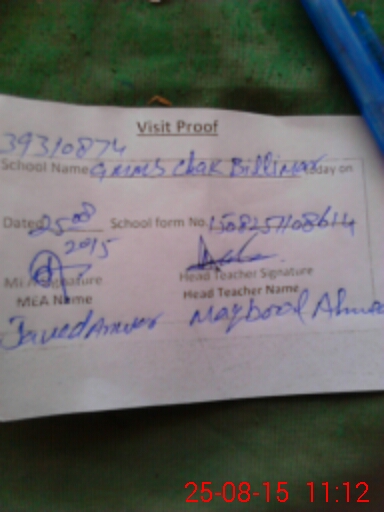 Visit Proof
39310874
School Name GMMS Chak Billimar today on
Dated 25-08 2015 School form No. 1508251108614
MEA Signature Head Teacher Signature
MEA Name Head Teacher Name
Javed Anwer Maqbool Ahmad
25-08-15 11:12